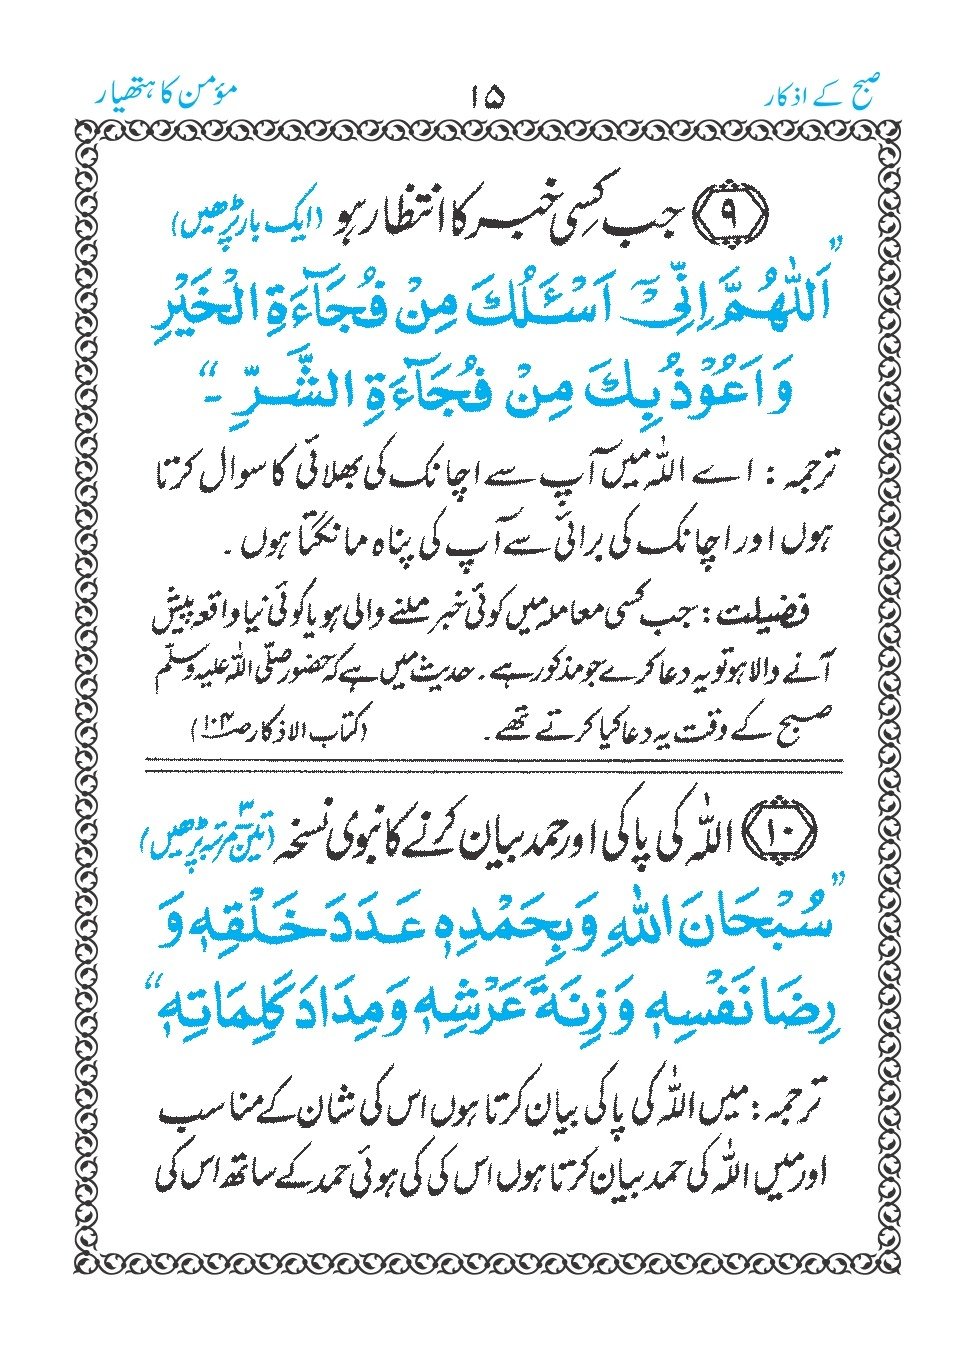 صبح کے اذکار
۱۵
مؤمن کا ہتھیار
۹ جب کسی خبر کا انتظار ہو (ایک بار پڑھیں)
"اَللّٰهُمَّ اِنِّیْٓ اَسْـَٔلُكَ مِنْ فُجَآءَةِ الْخَیْرِ
وَ اَعُوْذُ بِكَ مِنْ فُجَآءَةِ الشَّرِّ ۔"
ترجمہ : اے اللہ میں آپ سے اچانک کی بھلائی کا سوال کرتا
ہوں اور اچانک کی برائی سے آپ کی پناہ مانگتا ہوں ۔
فضیلت : جب کسی معاملہ میں کوئی خبر ملنے والی ہو یا کوئی نیا واقعہ پیش
آنے والا ہو تو یہ دعا کرے جو مذکور ہے ۔ حدیث میں ہے کہ حضور صلّی اللہ علیہ وسلّم
صبح کے وقت یہ دعا کیا کرتے تھے ۔ (کتاب الاذکار صـ۱۰۴)
۱۰ اللہ کی پاکی اور حمد بیان کرنے کا نبوی نسخہ (تین۳ مرتبہ پڑھیں)
"سُبْحَانَ اللهِ وَبِحَمْدِهٖ عَدَدَ خَلْقِهٖ وَ
رِضَا نَفْسِهٖ وَ زِنَةَ عَرْشِهٖ وَ مِدَادَ كَلِمَاتِهٖ"
ترجمہ : میں اللہ کی پاکی بیان کرتا ہوں اس کی شان کے مناسب
اور میں اللہ کی حمد بیان کرتا ہوں اس کی کی ہوئی حمد کے ساتھ اس کی